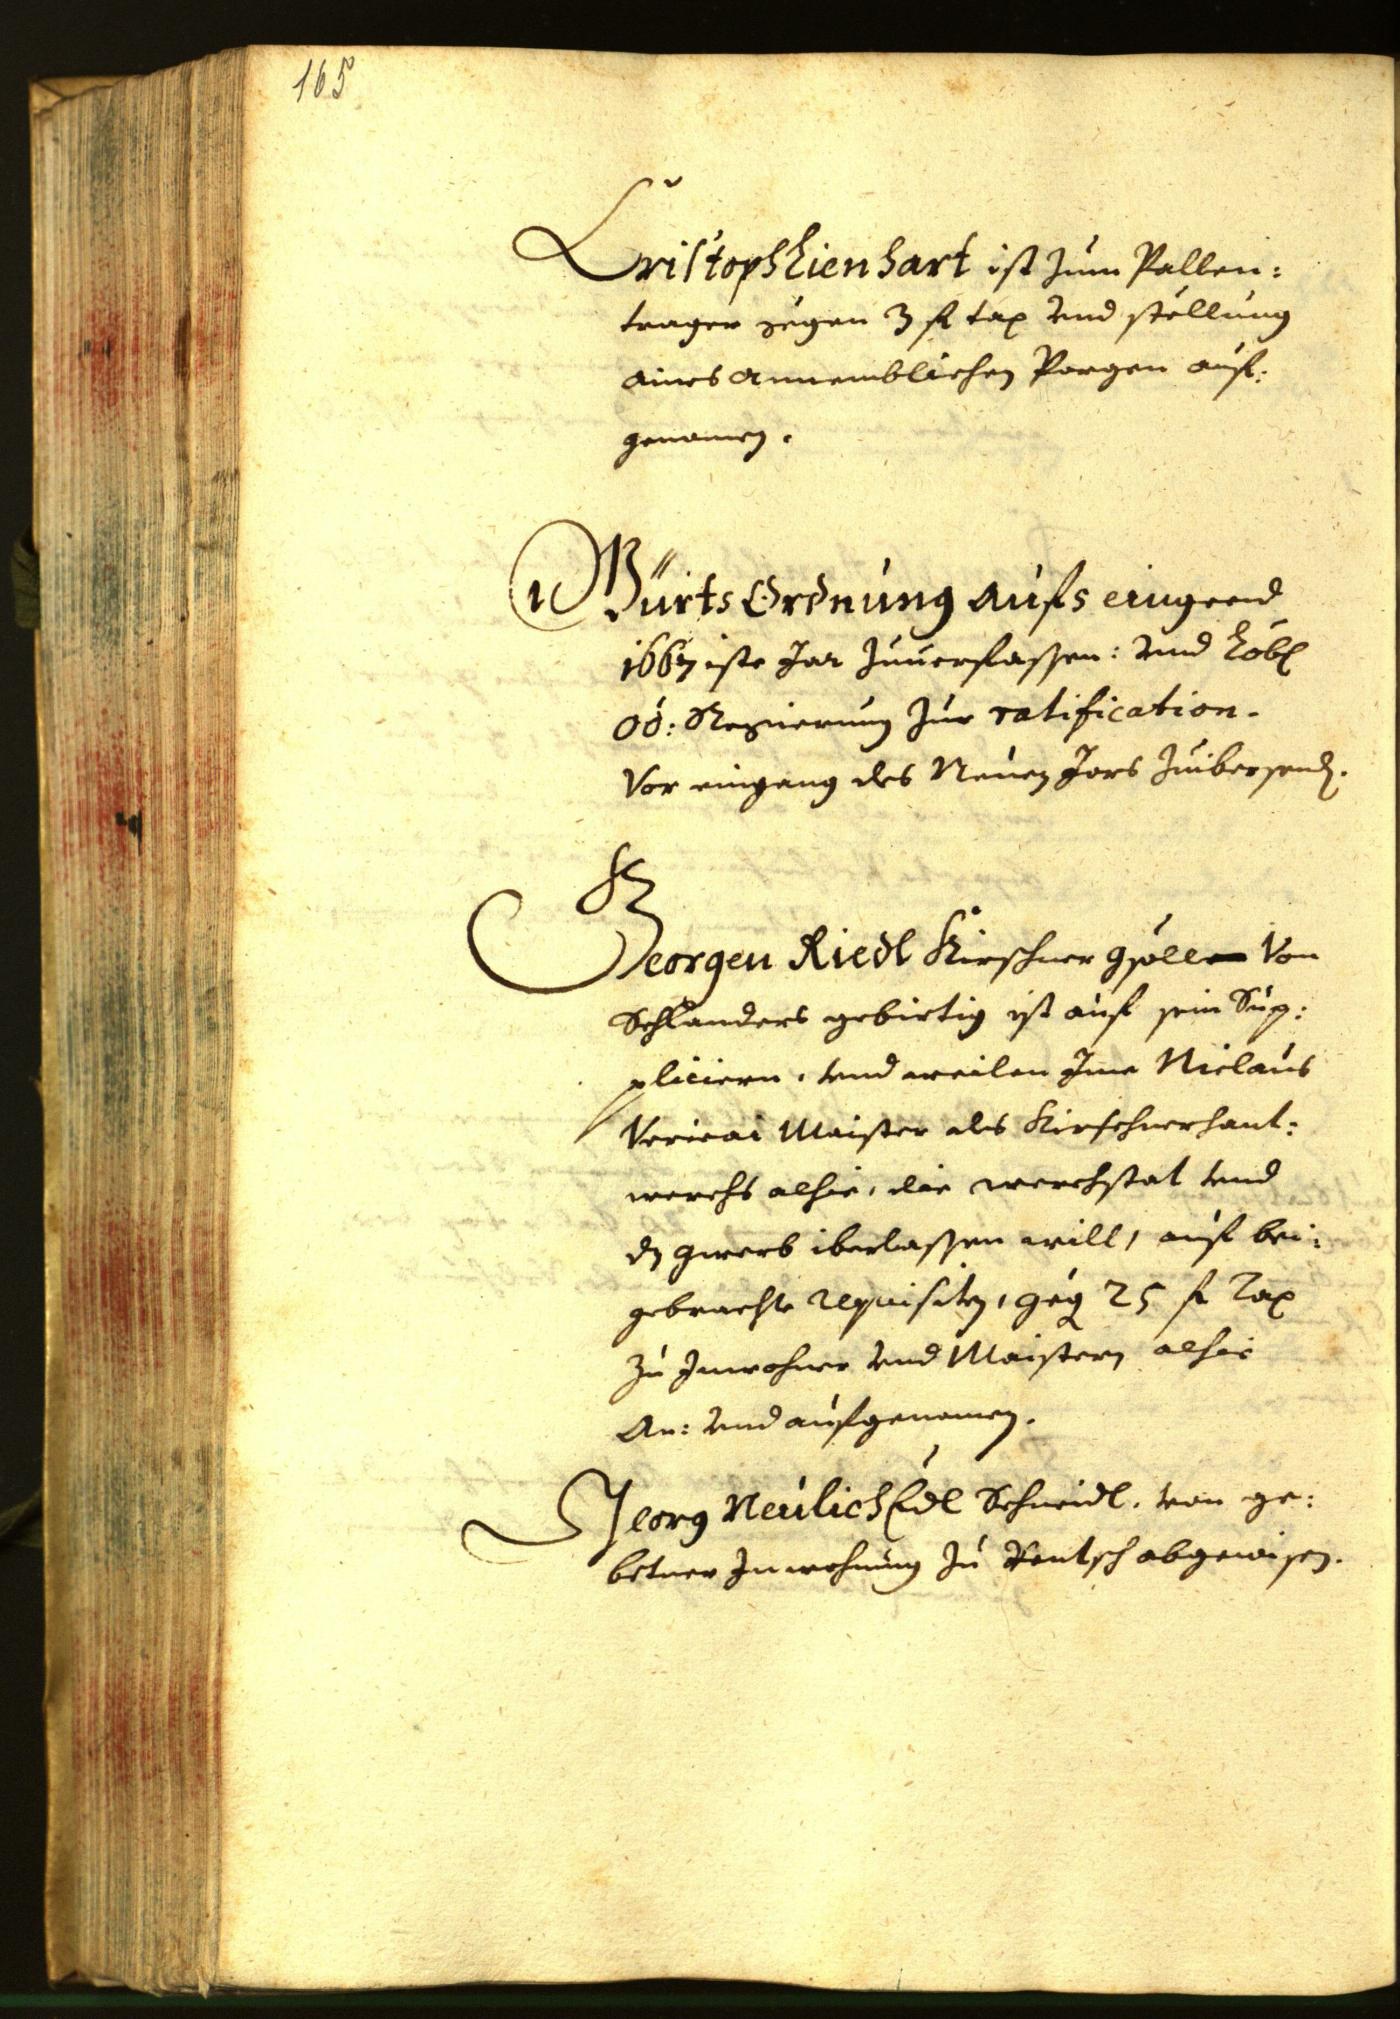 165
Cristoph Lienhart ist zum Pallen:
trager gegen 3 fl tax vnd stellung
aines annemblichen Porgen auf:
genomen.
Würts Ordnung aufs eingeend
1667iste Jar zuuerfassen: vnd Löbl
OÖ: Regierung zur ratification.
Vor eingang des Neuen Jars zuibersend.
Georgen Riedl Kirschner gsölle Von
Schlanders gebirtig ist auf sein Sup:
pliciern, vnd weilen Jme Niclaus
Maister des Kirschnerhant:
werchs alhie, die werchstat vnd
dz gwerb iberlassen will, auf bei:
gebrachte requisiten, geg 25 fl Tax
zu Jnwohner vnd Maistern alhie
An: vnd aufgenomen.
Georg Neulich Edl Schneidl. von ge:
betner Jnwohnung zu Rentsch abgewisen.